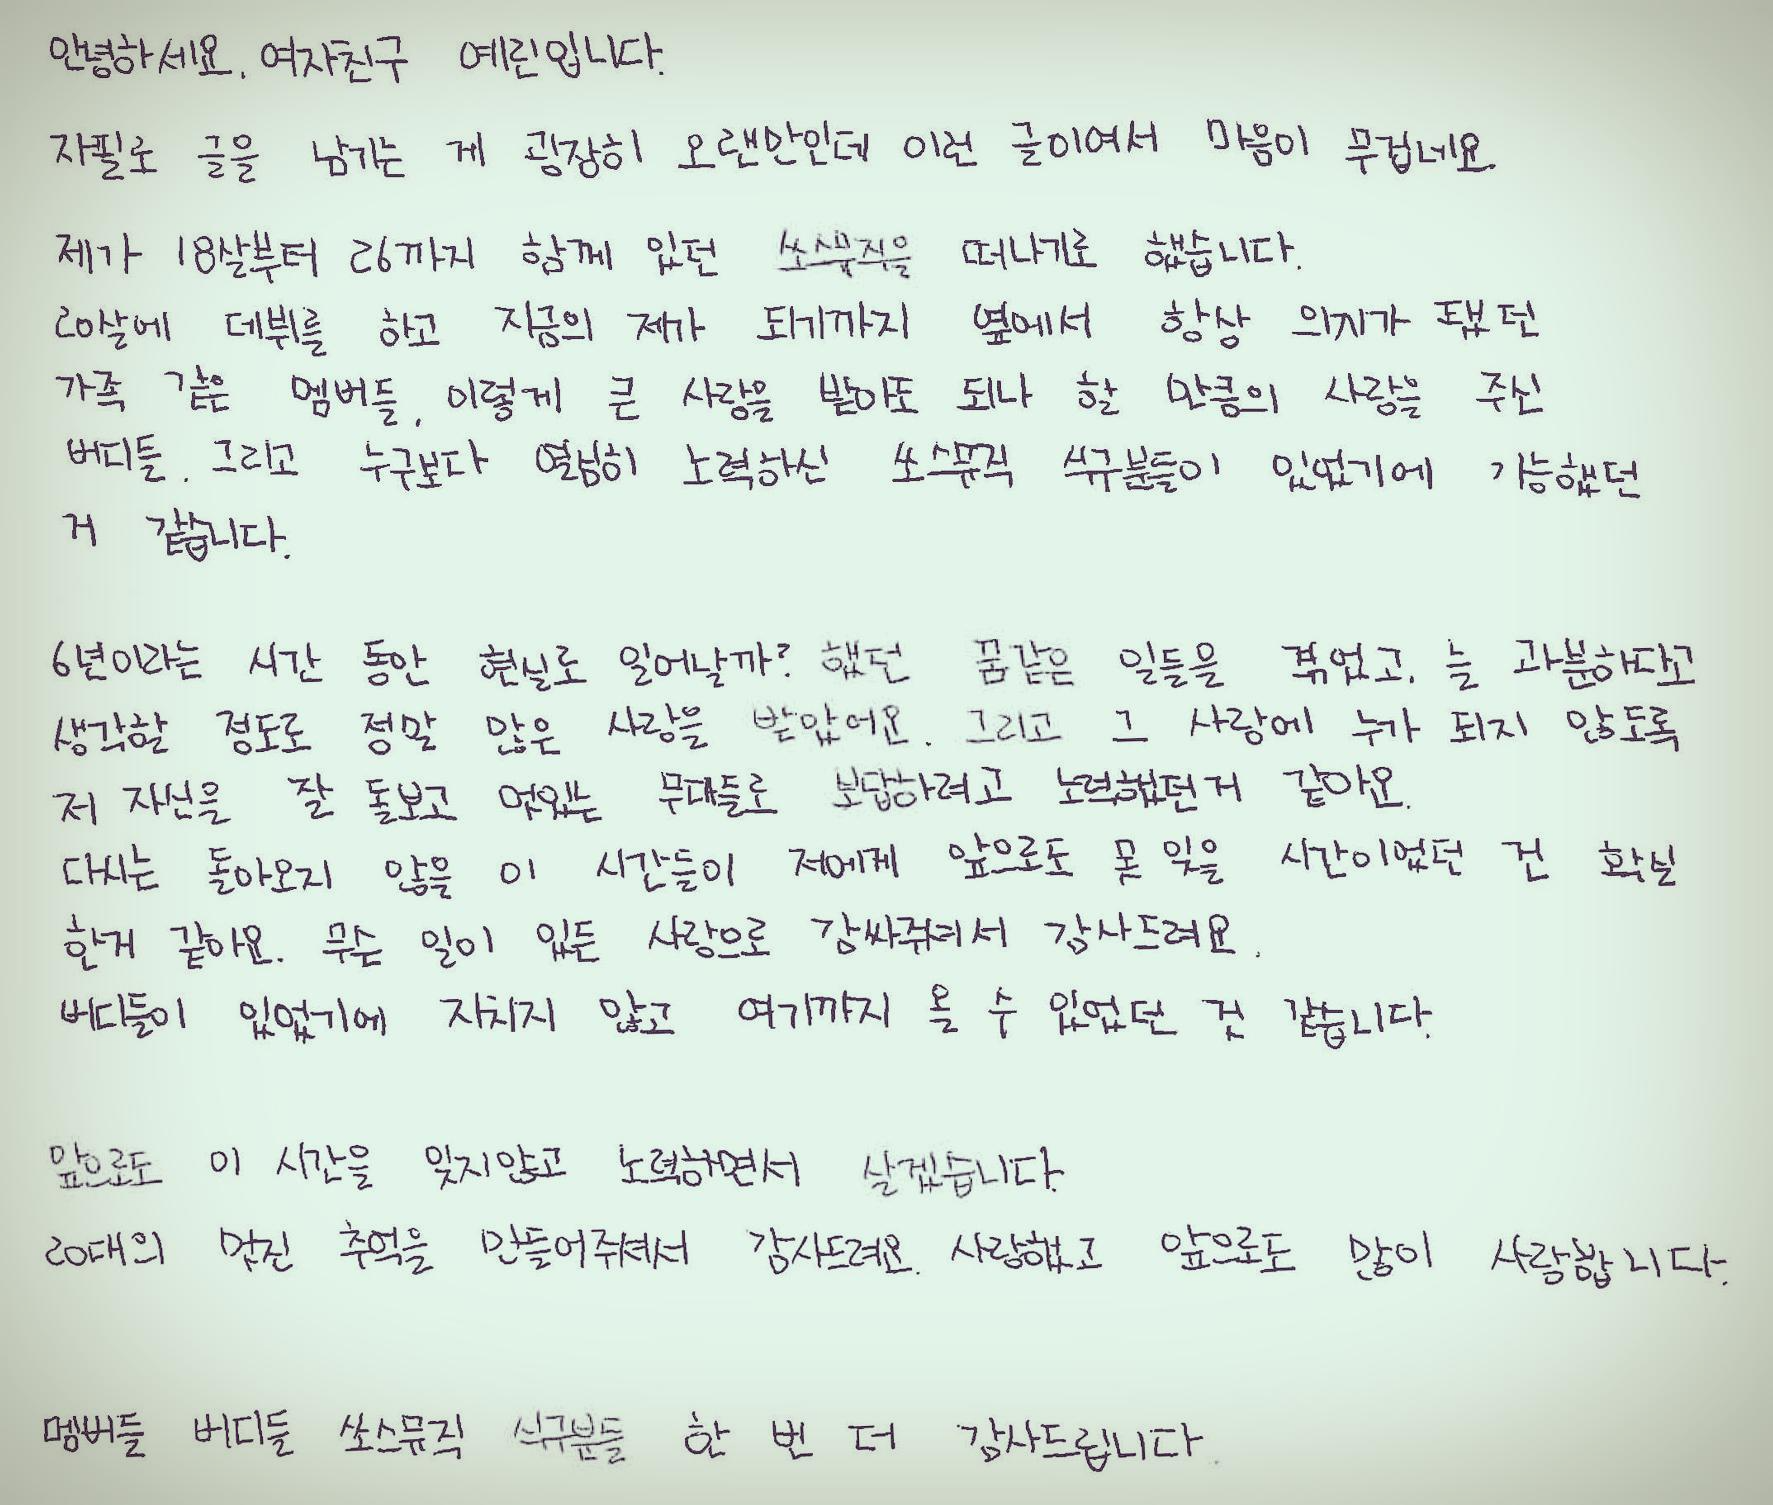 안녕하세요, 여자친구 예린입니다.
자필로 글을 남기는 게 굉장히 오랜만인데 이런 글이여서 마음이 무겁네요.
제가 18살부터 26까지 함께 있던 쏘스뮤직을 떠나기로 했습니다.
20살에 데뷔를 하고 지금의 제가 되기까지 옆에서 항상 의지가 됐던
가족 같은 멤버들, 이렇게 큰 사랑을 받아도 되나 할 만큼의 사랑을 주신
버디들, 그리고 누구보다 열심히 노력하신 쏘스뮤직 식구분들이 있었기에 가능했던
거 같습니다.
6년이라는 시간 동안 현실로 일어날까? 했던 꿈같은 일들을 겪었고, 늘 과분하다고
생각할 정도로 정말 많은 사랑을 받았어요. 그리고 그 사랑에 누가 되지 않도록
저 자신을 잘 돌보고 멋있는 무대들로 보답하려고 노력했던거 같아요.
다시는 돌아오지 않을 이 시간들이 저에게 앞으로도 못 잊을 시간이었던 건 확실
한거 같아요. 무슨 일이 있든 사랑으로 감싸줘서 감사드려요.
버디들이 있었기에 지치지 않고 여기까지 올 수 있었던 것 같습니다.
앞으로도 이 시간을 잊지않고 노력하면서 살겠습니다.
20대의 멋진 추억을 만들어주셔서 감사드려요. 사랑했고 앞으로도 많이 사랑합니다.
멤버들 버디들 쏘스뮤직 식구분들 한 번 더 감사드립니다.